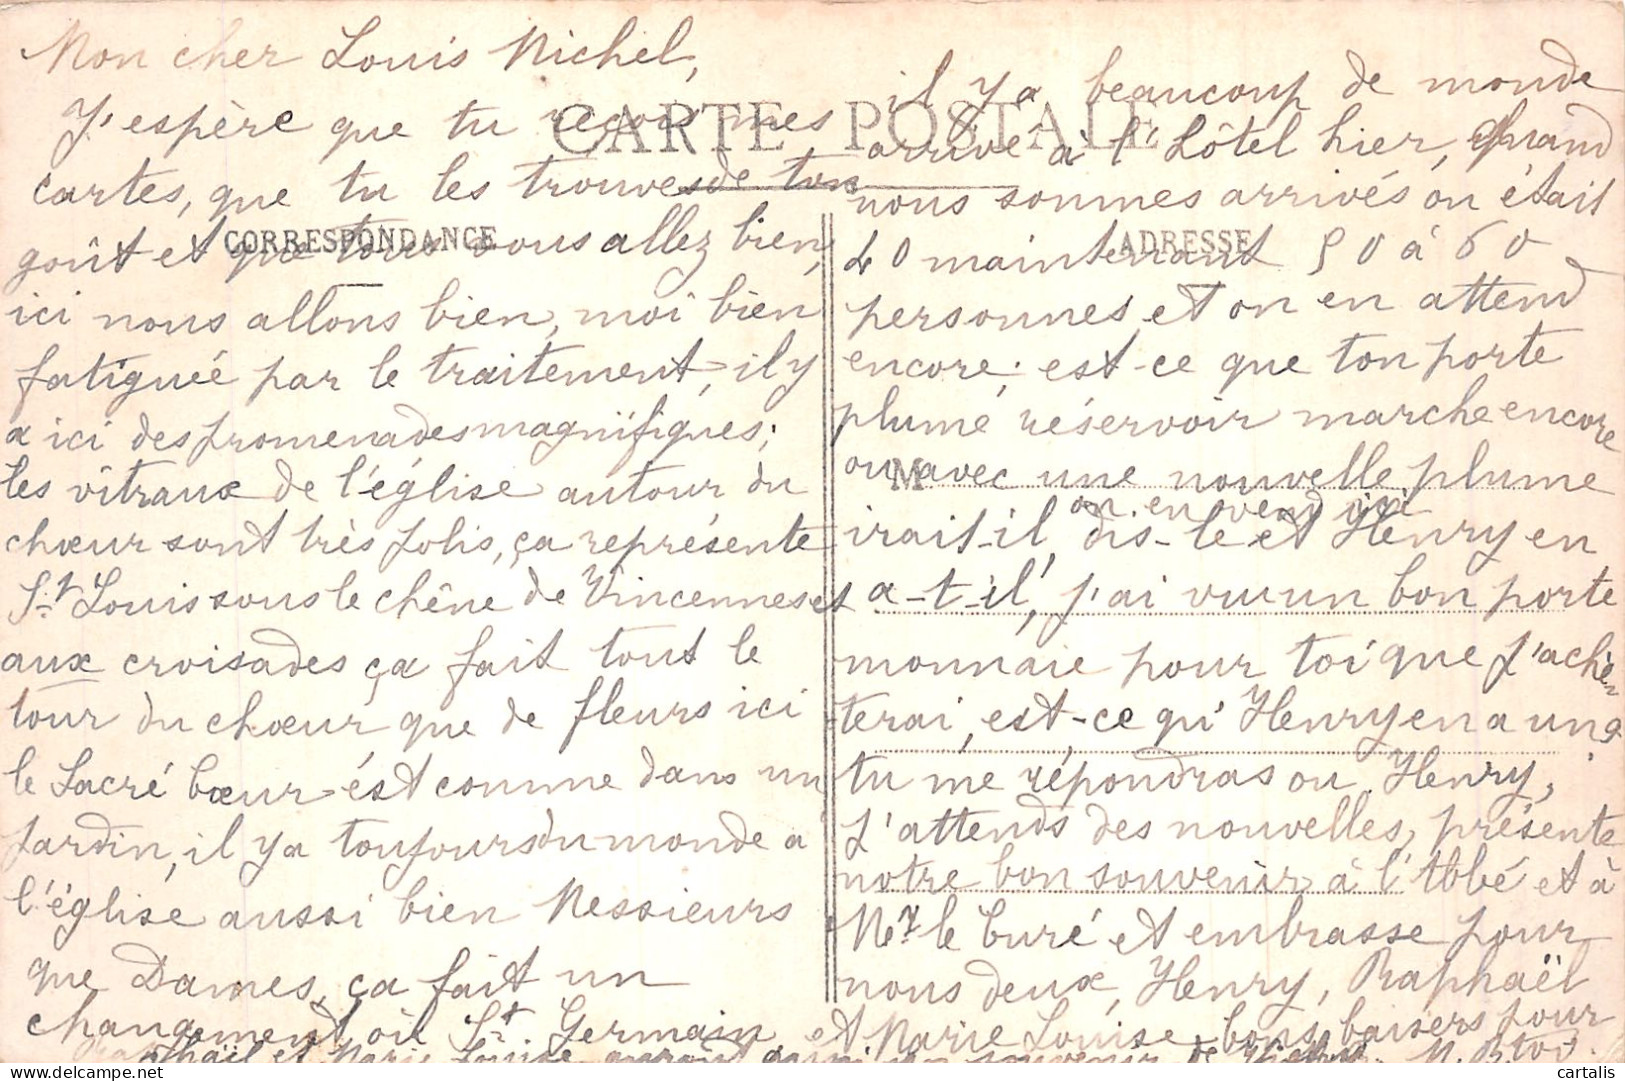 CARTE POSTALE
CORRESPONDANCE
Mon cher Louis Michel,
J'espère que tu reçois mes
cartes, que tu les trouves de ton
goût et que tous vous allez bien,
ici nous allons bien, moi bien
fatiguée par le traitement, il y
a ici des promenades magnifiques;
les vitraux de l'église autour du
chœur sont très jolis, ça représente
St Louis sous le chêne de Vincennes et
aux croisades ça fait tout le
tour du chœur que de fleurs ici
le Sacré Cœur est comme dans un
jardin, il y a toujours du monde à
l'église aussi bien Messieurs
que Dames, ça fait un
changement où St Germain
Raphaël et Marie Louise auront aussi un souvenir de
ADRESSE
M
il y a beaucoup de monde
arrivé à l'hôtel hier, Quand
nous sommes arrivés on était
40 maintenant 50 à 60
personnes, et on en attend
encore; est-ce que ton porte
plume réservoir marche encore
ou avec une nouvelle plume
on en vend ici
irait-il, dis-le et Henry en
a-t-il, j'ai vu un bon porte
monnaie pour toi que j'achè-
terai, est-ce qu'Henry en a un?
tu me répondras ou Henry,
j'attends des nouvelles, présente
notre bon souvenir à l'Abbé et à
Mr le Curé et embrasse pour
nous deux, Henry, Raphaël
et Marie Louise, bons baisers pour
toi.
cartalis